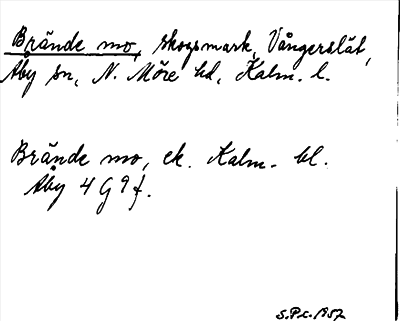 Brände mo, skogsmark, Vångerslät,
Åby sn, N. Möre hd, Kalm. l.
Brände mo, ek. Kalm. bl.
Åby 4 G 9 f.
S.P.c. 1957